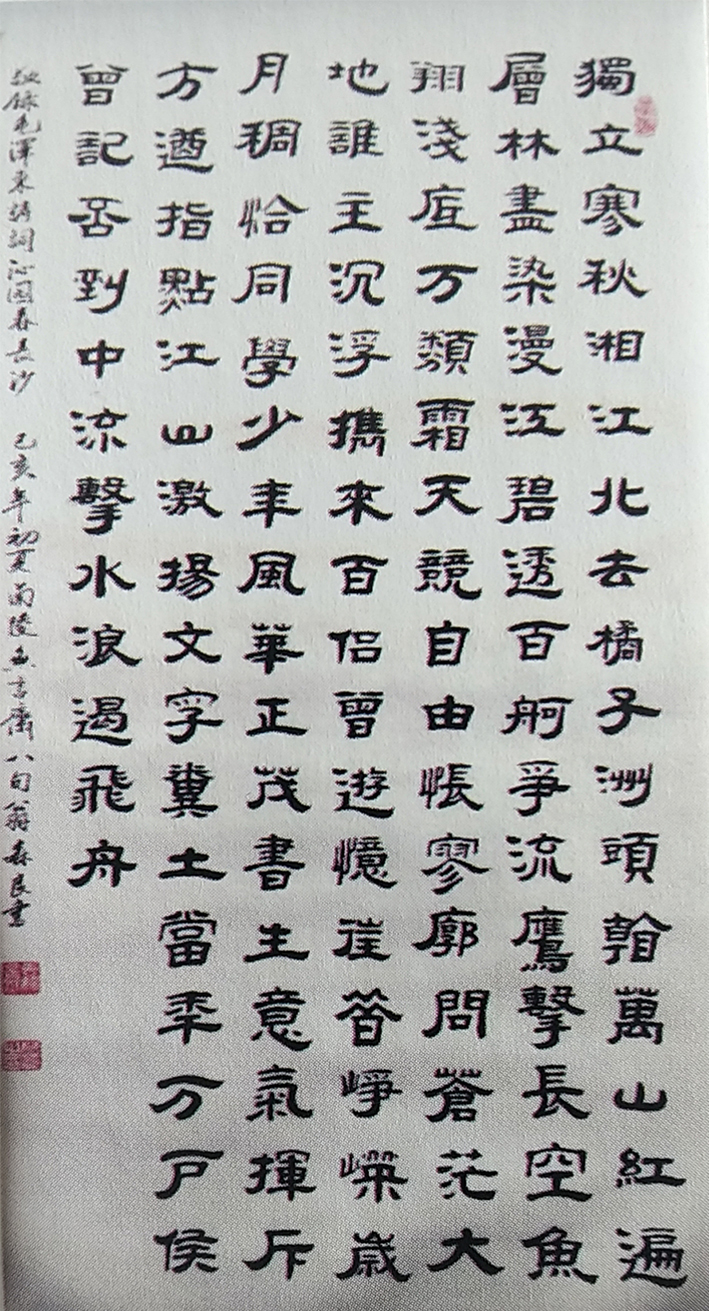 獨立寒秋湘江北去橘子洲頭看萬山紅遍
層林盡染漫江碧透百舸爭流鷹擊長空魚
翔淺底万類霜天競自由悵寥廓問蒼茫大
地誰主沉浮攜來百侶曾遊憶往昔崢嶸歲
月稠恰同學少年風華正茂書生意氣揮斥
方遒指點江山激揚文字糞土當年万戶侯
曾記否到中流擊水浪遏飛舟
敬錄毛澤東詩詞沁园春長沙 己亥年初夏南陵無言齋八旬翁森良書